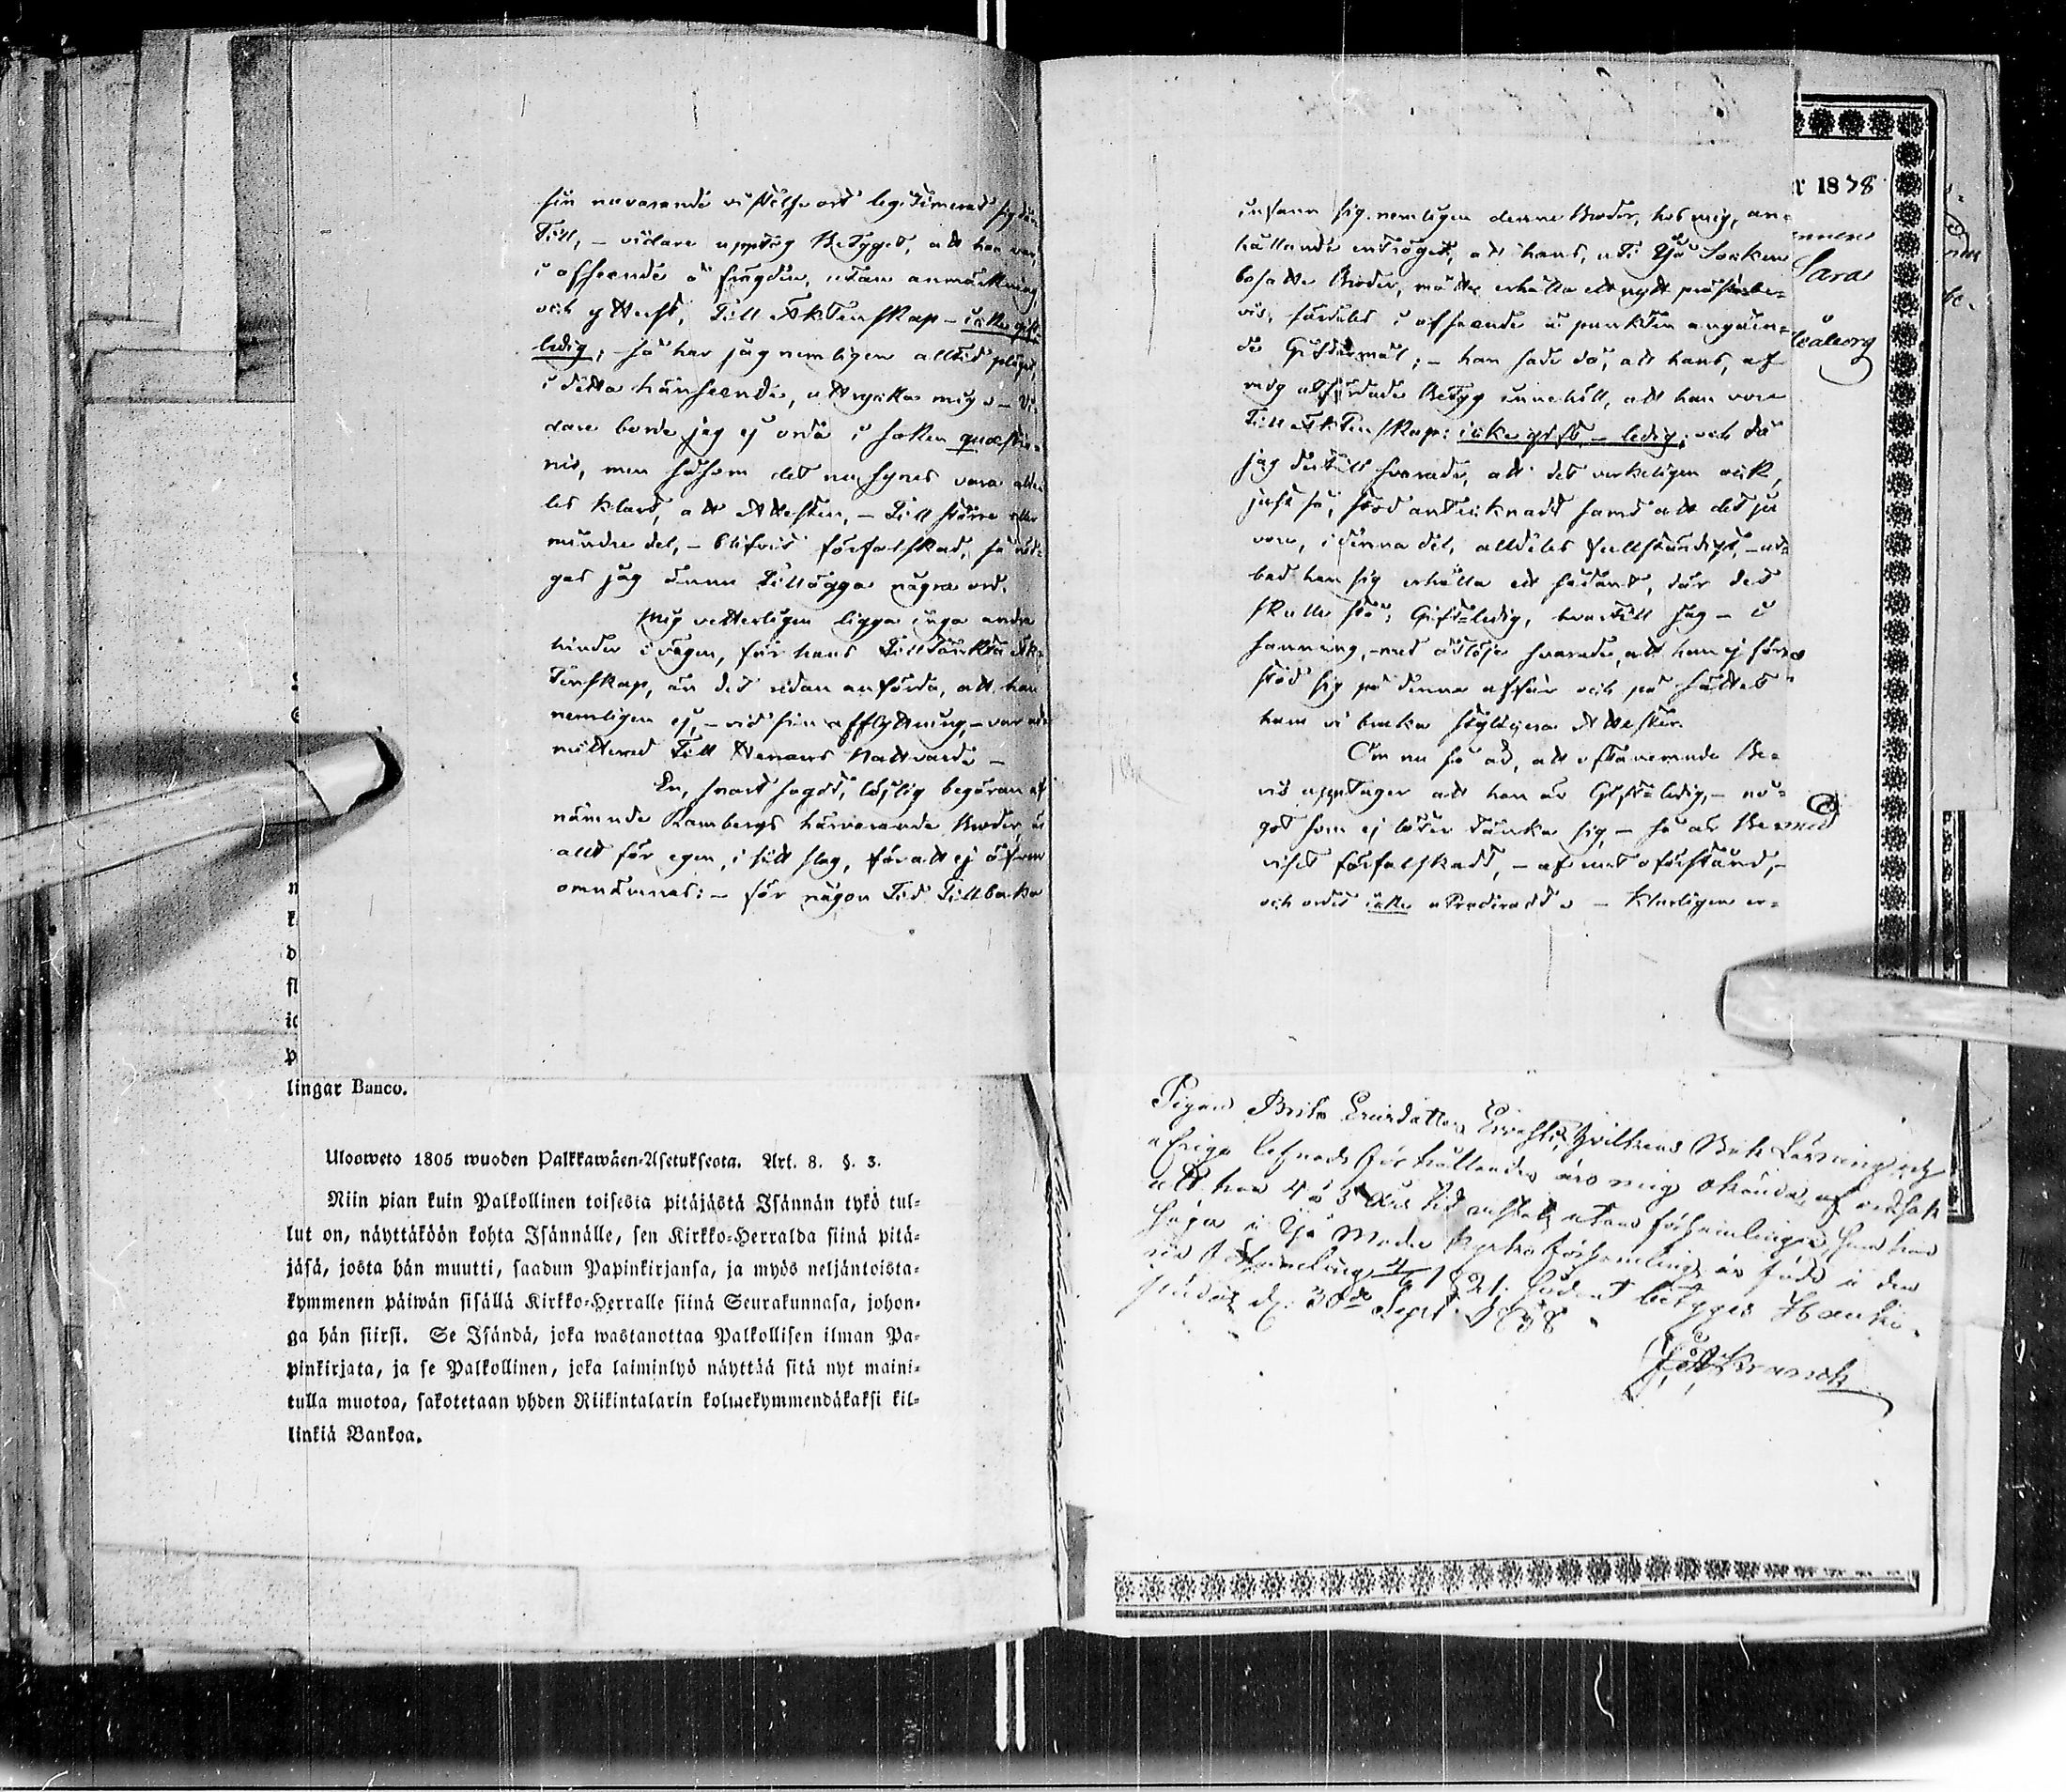 sin nuvarande vistelse ort legitimerad sig där
till, – vidare upptog Betyget, att han var,
i afseende å frägden, utan anmärkning
och y tterst, till Äktenskap – icke gift
ledig; så har jag nemligen alltid plägat,
i detta hänseende, uttrycka mig. – Vi-
dare borde jag ej orda i saken quæstio-
nis, men såsom det nu synes vara allde-
les klart, att Attesten, – till större eller
mindre del, – blifvit förfalskad, så nöd-
gas jag ännu tillägga några ord.
Mig vetterligen ligga inga andra
hinder i vägen, för hans tilltänkta Äk-
tenskap, än det redan anförda, att han
nemligen ej, – vid sin afflyttning, – var ad-
mitterad till Herrans Nattvard –
En, snart sagdt, löjlig begäran af
nämnde Rambergs härvarande Broder, är
allt för egen, i sitt slag, för att ej äfven
omnämnas: – för någon Tid tillbaka
lingar Banco.
Ulosweto 1805 wuoden Palkkawäen-Asetuksesta. Art. 8. §. 3.
Niin pian kuin Palkollinen toisesta pitäjästä Isännän tykö tul-
lut on, näyttäköön kohta Isännälle, sen Kirkko-Herralda siinä pitä-
jäsä, josta hän muutti, saadun Papinkirjansa, ja myös neljäntoista-
kymmenen päiwän sisällä Kirkko-Herralle siinä Seurakunnasa, johon-
ga hän siirsi. Se Isändä, joka wastanottaa Palkollisen ilman Pa-
pinkirjata, ja se Palkollinen, joka laiminlyö näyttää sitä nyt maini-
tulla muotoa, sakotetaan yhden Riikintalarin kolmekymmendäkaksi kil-
linkiä Bankoa.
infann sig nemligen denne Broder, hos mig, an-
hållande enträget, att hans, uti Ijo Socken
bosatte Broder, måtte erhålla ett nytt prästbe-
vis, särdeles i afseende å punkten angåen-
de Giftermål; – han sade då, att hans, af
mig utfärdade Betyg innehöll, att han vore
till Äktenskap: icke gift, – ledig; och då
jag dertill svarade, att det verkeligen ock,
just så, stod antecknadt samt att det ju
vore, i denna del, alldeles fullständigt, – ut-
bad han sig erhålla ett sådant, der det
skulle stå: Gift-ledig, hvartill jag – i
sanning, – med åtlöje svarade, att han ej för-
stod sig på denna affär och på sättet
huru vi bruka stylisera Attester.
Om nu så är, att oftanämnde Be-
vis upptager att han är Gift-ledig, – nå-
got som ej låter tänka sig, – så är Be
viset förfalskadt, – af ett oförstånd, –
och ordet icke utraderadt. – Klarligen er-
r 1838
Sara
Uleåborg
med
Pigans Brita Ericsdotter
öfriga lefnads förhållanden äro mig okända, af orsak
att hon 4 à 5 års tid vistats utom församlingen,
à Ijo Moder kyrko församling, är född i den
församling 4/6 1821. Sådant betygar Hauki-
pudas d. 30de Sept. 1838.